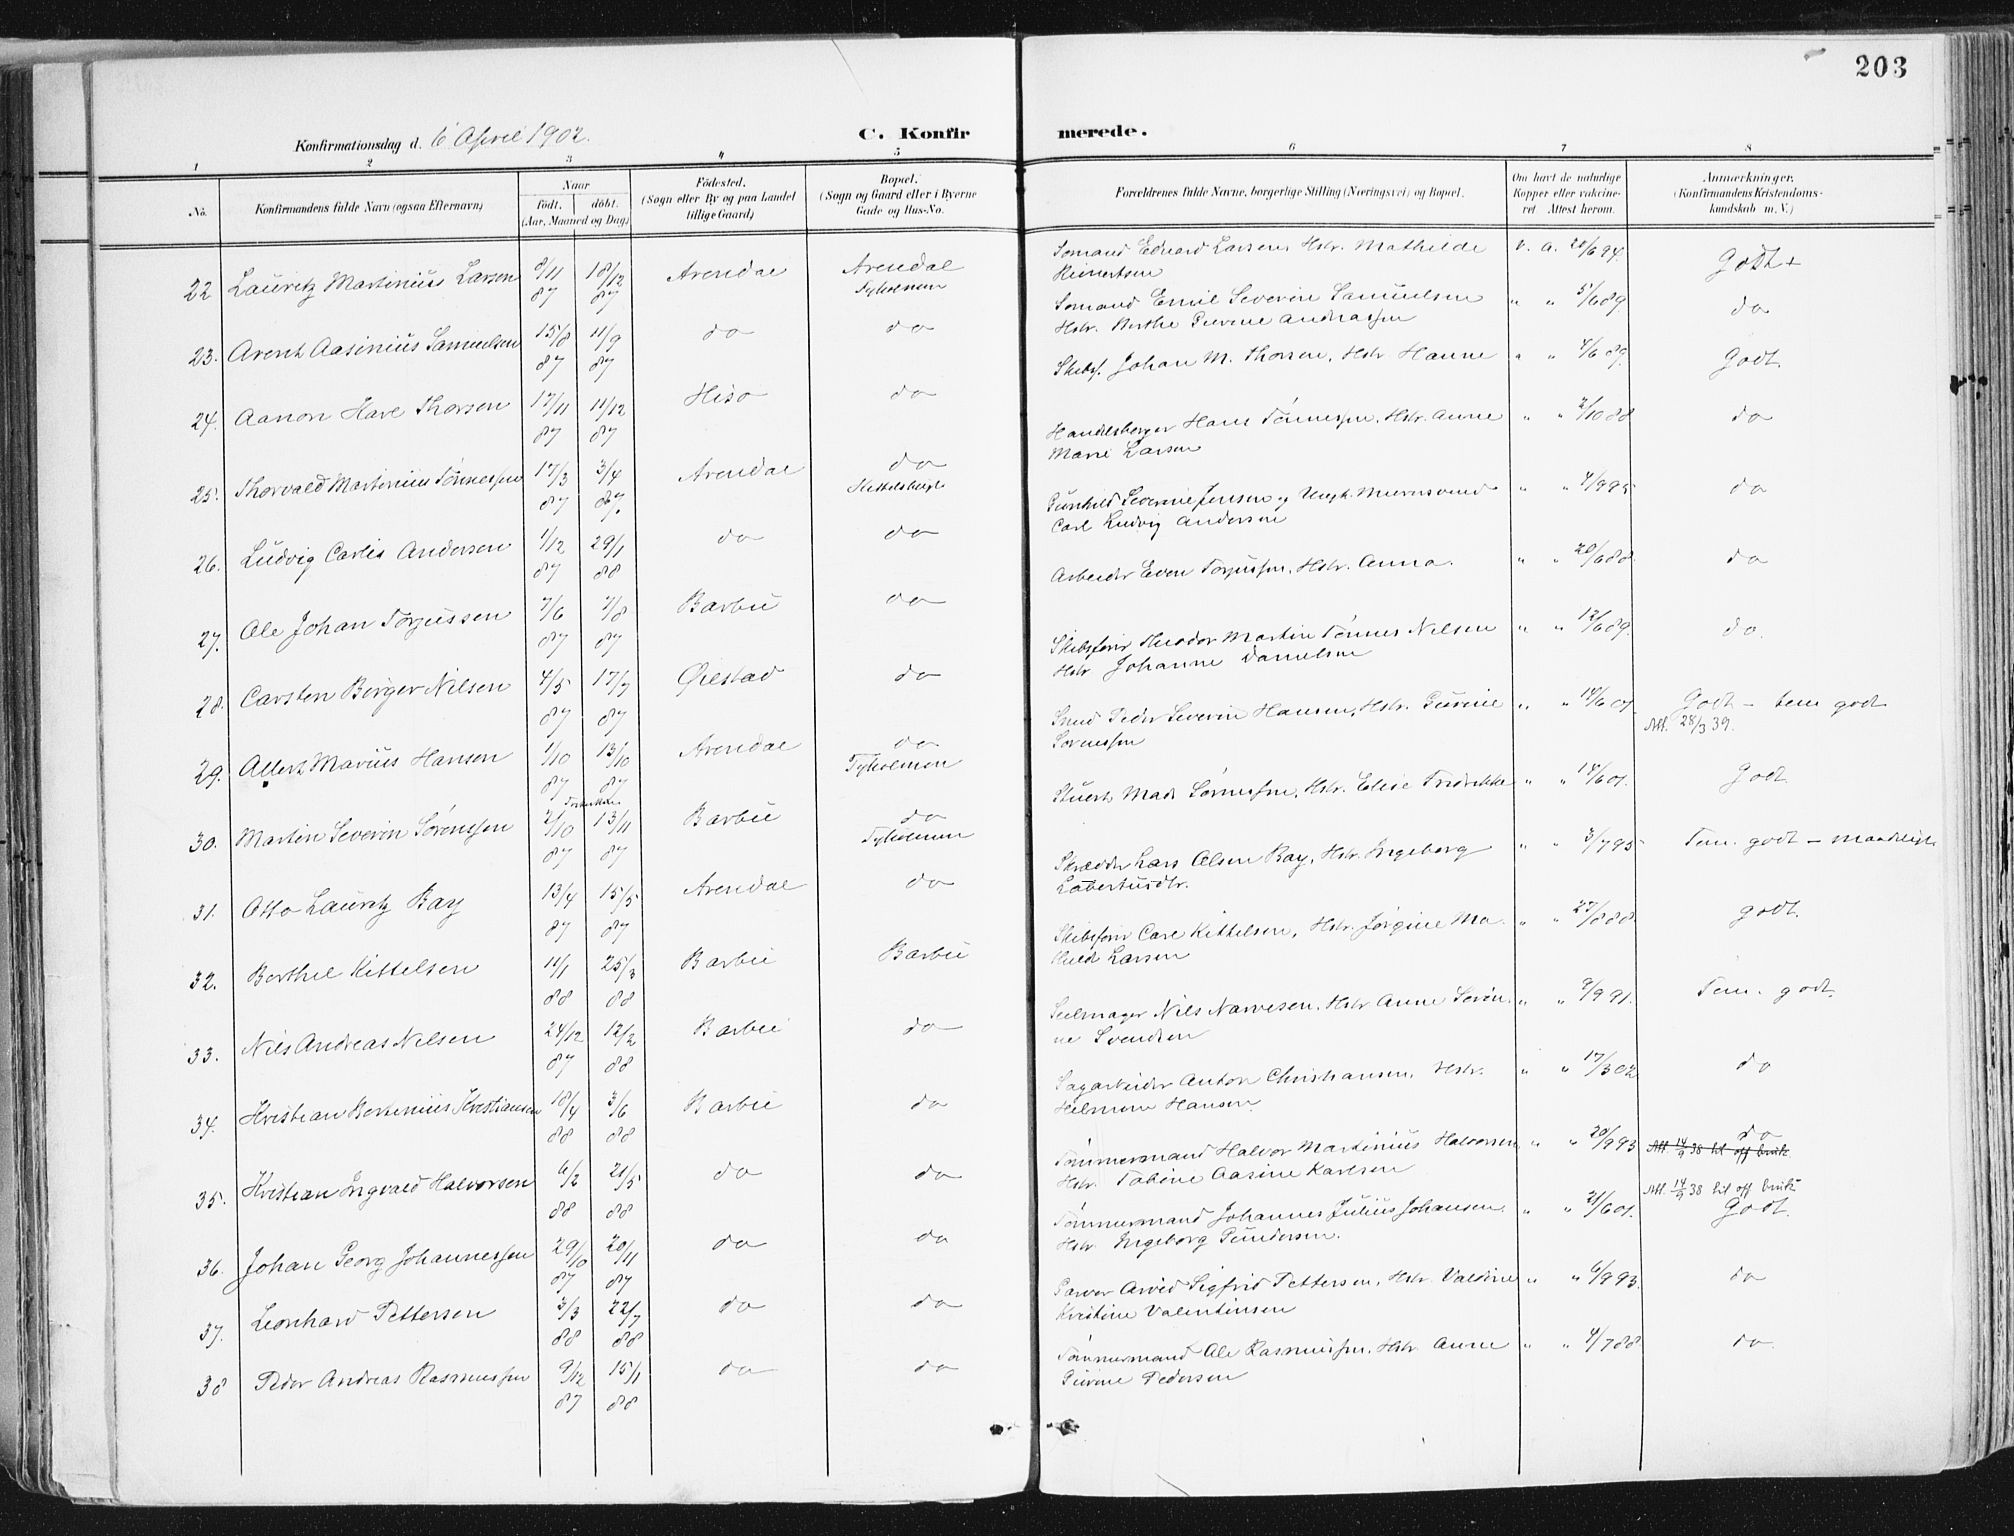 203
Konfirmationsdag d. 6 April 1902.
C. Konfirmerede.
1 2 3 4 5 6 7 8
No.
Konfirmandens fulde Navn (ogsaa Efternavn)
Naar
født. døbt.
(Aar, Maaned og Dag)
Fødested.
(Sogn eller By og paa Landet tillige Gaard)
Bopæl.
(Sogn og Gaard eller i Byerne Gade og Hus-No.
Forældrenes fulde Navne, borgerlige Stilling (Næringsvei) og Bopæl.
Om havt de naturlige Kopper eller vakcineret Attest herom.
Anmerkninger.
(Konfirmandens Kristendomskundskab m. V.)
22 Lauritz Martinius Larsen 8/11 87 18/12 87 Arendal Arendal Tyholmen Sømand Eduard Larsen, Hstr. Mathilde v. a. 20/6 94. Godt +
23. Arent Aasinius Samuelsen 15/8 87 11/9 87 do do Sømand Emil Severin Samuelsen Hstr. Berthe Gurine Andreassen " " 5/6 89. do
24. Aanon Thorsen 17/11 87 11/12 87 Hisø do Skibsf. Johan M. Thorsen, Hstr. Hanne " " 4/6 89. Godt.
25. Thorvald Martinius Tønnessen 17/3 87 3/4 87. Arendal do Handelsborger Hans Tønnessen, Hstr. Anne Marie Larsen " " 2/10 88 do
26. Ludvig Carlis Andersen 1/12 87 29/1 88 do do Gunhild Severine Jensen og Ungk. Murersvend Carl Ludvig Andersen " " 4/9 95 do
27. Ole Johan Torjussen 7/6 87 7/8 87 Barbu do Arbeider Even Torjussen, Hstr. Anna. " " 20/6 88. do
28. Carsten Berger Nilsen 4/5 87 17/7 87 Øiestad do Skibsfører Theodor Martin Tønnes Nilsen Hstr. Johanne Danielsen " " 12/6 89. do.
29. Albert Marius Hansen 1/10 87 13/10 87 Arendal do Tyholmen Smed Peder Severin Hansen, Hstr. Gurine Sørenssen " " 14/6 01. Godt - tem godt
Att. 28/3 39.
30. Martin Severin Sørenssen 2/10 87 13/11 87 Barbu do Tyholmen Stuert Mads Sørenssen, Hstr. Elise Fredrikke " " 14/6 01. Godt
31. Otto Lauritz Bay 13/4 87 15/5 87 Arendal do Skrædder Lars Olsen Bay, Hstr. Ingeborg Labertusdtr. " " 3/7 95 Tem. godt - maadeligt
32. Berthel Kittelsen 11/1 88 25/3 88 Barbu Barbu Skibsfører Carl Kittelsen, Hstr. Jørgine Mathilde Larsen " " 27/8 88. godt.
33. Nils Andreas Nilsen 24/12 87 12/2 88 Barbu do Seilmager Nils Narvesen, Hstr. Anne Serine Svendsen " " 9/9 91. Tem. godt.
34. Kristian Bertinius Kristiansen 18/4 88 3/6 88 Barbu do Sagarbeider Anton Christiansen, Hstr. Helmine Hansen. " " 17/3 02 do
35. Kristian Ingvald Halvorsen 6/2 88 21/5 88 do do Tømmermand Halvor Martinius Halvorsen, Hstr. Tobine Aasine Karlsen " " 20/9 93 do
Att. 14/9 38 til off bruk
36. Johan Georg Johannessen 29/10 87 20/11 87 do do Tømmermand Johannes Julius Johansen. Hstr. Ingeborg Gundersen. " " 21/6 01. Att. 14/9 38 til off bruk Godt.
37. Leonhard Pettersen 3/3 88 22/7 88 do do Garver Arvid Sigfrid Pettersen, Hstr. Valdine Kristine Valentinsen " " 6/9 93. do
38 Peder Andreas Rasmussen 9/12 87 15/1 88 do do Tømmermand Ole Rasmussen, Hstr. Anne Gurine Pedersen " " 4/7 88. do